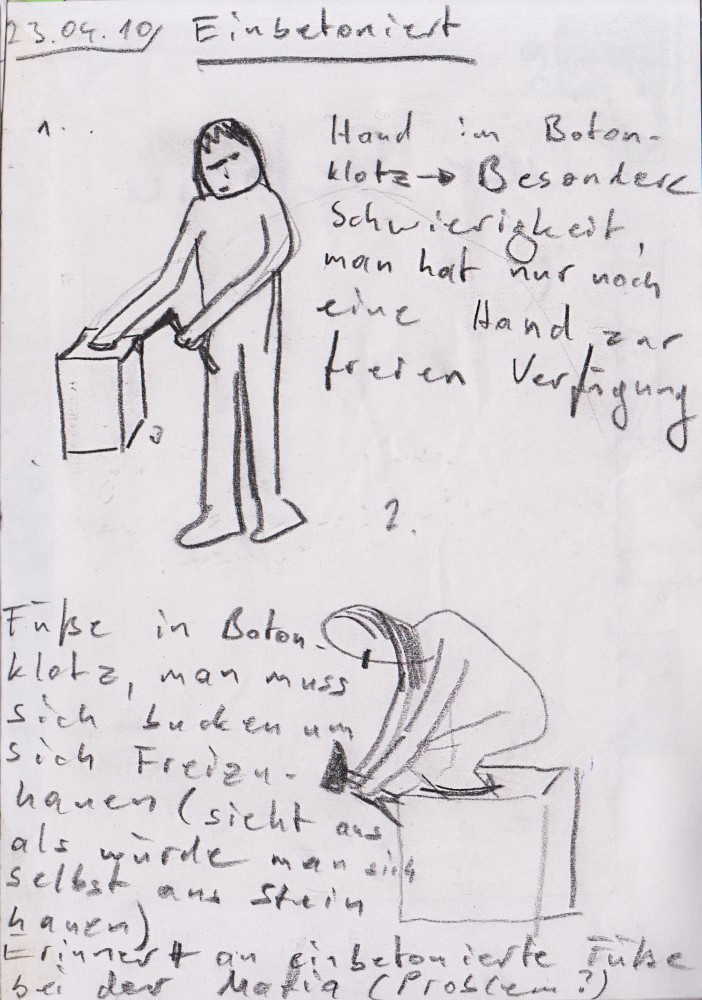 23.04.10, Einbetoniert
1.
Hand im Beton-
klotz → Besondere
Schwierigkeit,
man hat nur noch
eine Hand zur
freien Verfügung
2.
Füße in Beton-
klotz, man muss
sich bucken um
sich Freizu-
hauen (sieht aus
als würde man sich
selbst aus Stein
hauen)
Erinnert an einbetonierte Füße
bei der Mafia (Problem?)